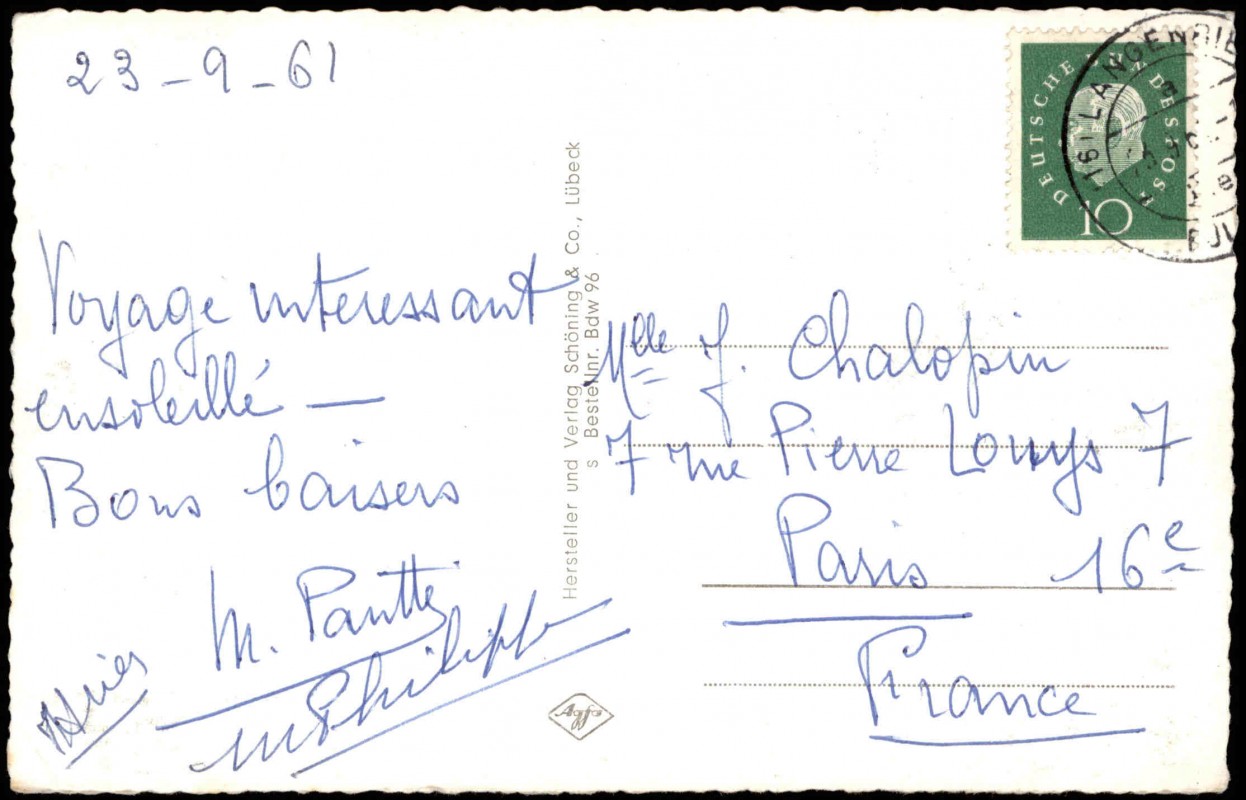 23-9-61
Voyage interessant
ensoleillé —
Bons baisers
M. Pautte
Philippe
Hersteller und Verlag Schöning & Co., Lübeck
s Bestellnr. Bdw 96
Agfa
DEUTSCHE BUNDESPOST
10
LANGENRIE
Mlle J. Chalopin
7 rue Pierre Louys 7
Paris 16e
France